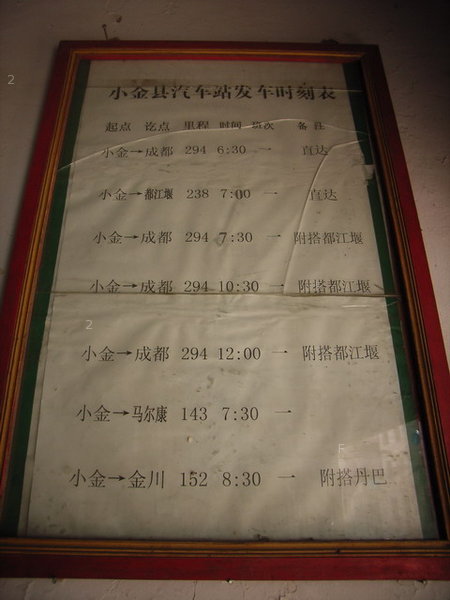 小金县汽车站发车时刻表
起点 讫点 里程 时间 班次 备注
小金→成都 294 6:30 一 直达
小金→都江堰 238 7:00 一 直达
小金→成都 294 7:30 一 附搭都江堰
小金→成都 294 10:30 一 附搭都江堰
小金→成都 294 12:00 一 附搭都江堰
小金→马尔康 143 7:30 一
小金→金川 152 8:30 一 附搭丹巴
2
2
F